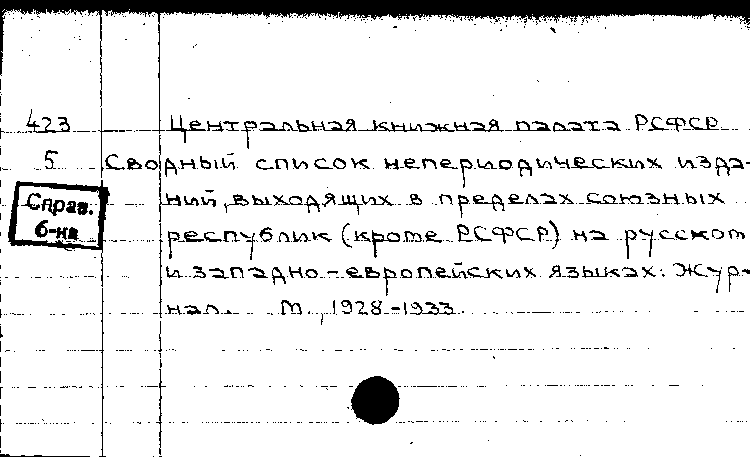 423 Центральная книжная палата РСФСР
5 Сводный список непериодических изда-
Справ. ний, выходящих в пределах союзных
б-ка республик (кроме РСФСР) на русском
и западно-европейских языках. Жур-
нал. М., 1928-1933.